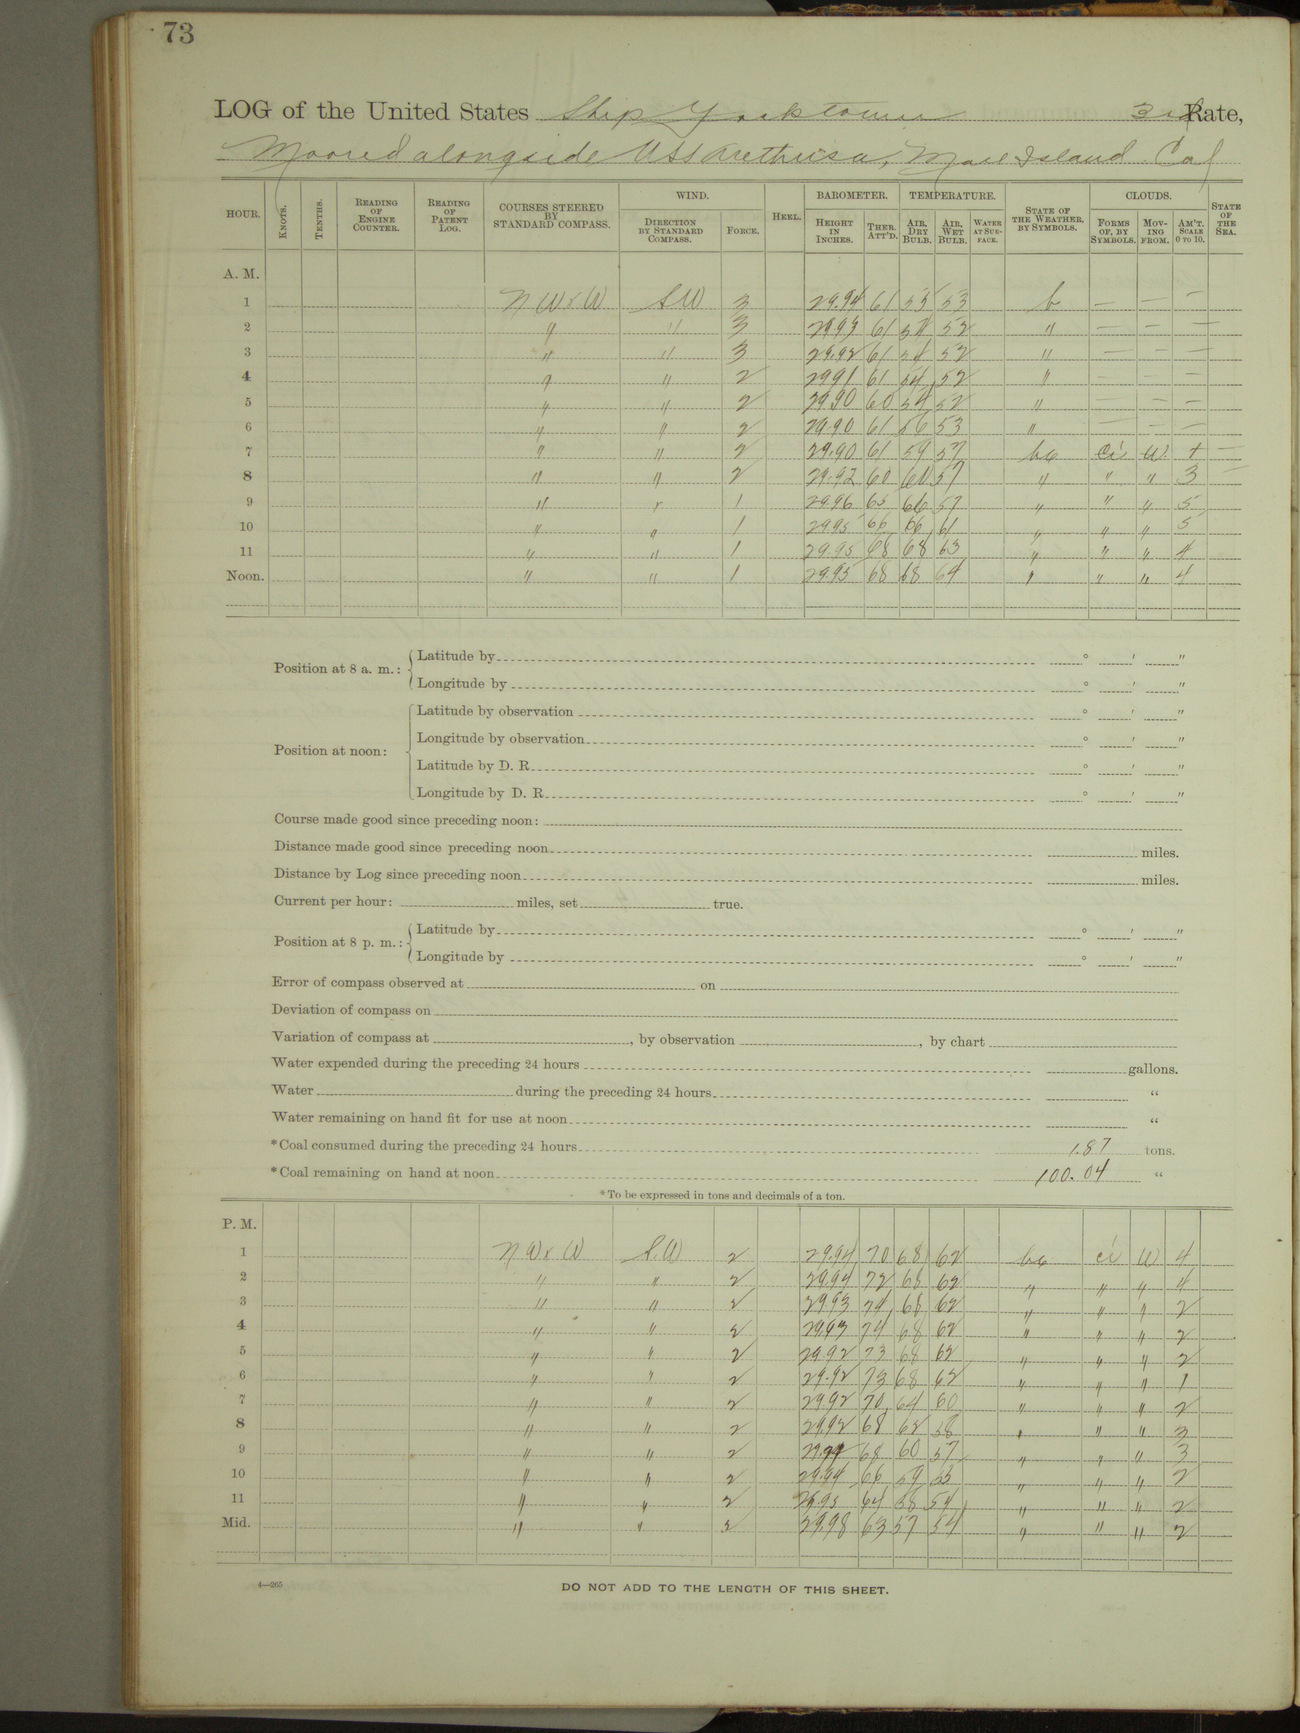 73
LOG of the United States Ship Yorktown 3rd Rate,
Moored alongside USS Arethusa, Mare Island Cal
HOUR. KNOTS. TENTHS. READING OF ENGINE COUNTER. READING OF PATENT LOG. COURSES STEERED BY STANDARD COMPASS. WIND. DIRECTION BY STANDARD COMPASS. FORCE. HEEL. BAROMETER. HEIGHT IN INCHES. THER. ATT'D. TEMPERATURE. AIR, DRY BULB. AIR, WET BULB. WATER AT SUR-FACE. STATE OF THE WEATHER, BY SYMBOLS. CLOUDS. FORMS OF, BY SYMBOLS. MOV-ING FROM. AM'T. SCALE 0 TO 10. STATE OF THE SEA.
A. M.
1 NWxW SW 3 29.94 61 55 53 b — — —
2 " " 3 29.93 61 54 52 " — — —
3 " " 3 29.92 61 54 52 " — — —
4 " " 2 29.91 61 54 52 " — — —
5 " " 2 29.90 60 54 52 " — — —
6 " " 2 29.90 61 56 53 " — — —
7 " " 2 29.90 61 59 57 bc Ci W + —
8 " " 2 29.92 60 60 57 " " " 3 —
9 " " 1 29.96 65 66 57 " " " 5
10 " " 1 29.95 66 66 61 " " " 5
11 " " 1 29.95 68 68 63 " " " 4
Noon. " " 1 29.95 68 68 64 " " " 4
Position at 8 a. m.: Latitude by ° ' "
Longitude by ° ' "
Position at noon: Latitude by observation ° ' "
Longitude by observation ° ' "
Latitude by D. R. ° ' "
Longitude by D. R. ° ' "
Course made good since preceding noon:
Distance made good since preceding noon miles.
Distance by Log since preceding noon miles.
Current per hour: miles, set true.
Position at 8 p. m.: Latitude by ° ' "
Longitude by ° ' "
Error of compass observed at on
Deviation of compass on
Variation of compass at , by observation , by chart
Water expended during the preceding 24 hours gallons.
Water during the preceding 24 hours "
Water remaining on hand fit for use at noon "
*Coal consumed during the preceding 24 hours 1.87 tons.
*Coal remaining on hand at noon 100.04 "
*To be expressed in tons and decimals of a ton.
P. M.
1 NWxW S.W 2 29.94 70 68 62 bc ci W 4
2 " " 2 29.94 72 68 62 " " " 4
3 " " 2 29.93 74 68 62 " " " 2
4 " " 2 29.93 74 68 62 " " " 2
5 " " 2 29.92 73 68 62 " " " 2
6 " " 2 29.92 73 68 62 " " " 1
7 " " 2 29.92 70 64 60 " " " 2
8 " " 2 29.92 68 62 58 " " " 3
9 " " 2 68 60 57 " " " 3
10 " " 2 29.94 66 59 55 " " " 2
11 " " 2 29.95 64 58 54 " " " 2
Mid. " " 2 29.98 63 57 54 " " " 2
4—265
DO NOT ADD TO THE LENGTH OF THIS SHEET.